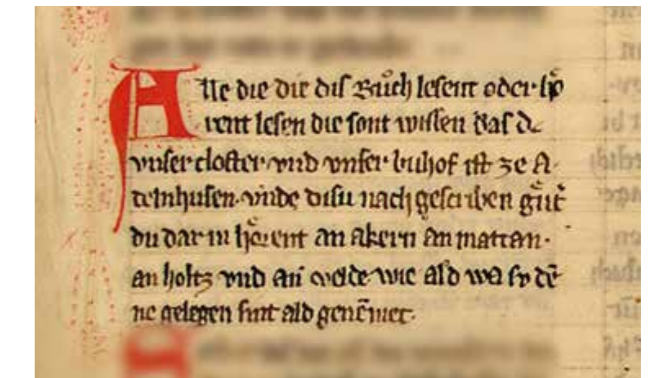 Alle die dir dis Bůch lesent oder hö
rent lesen die sont wissen das d
vnser closter vnd vnser buhof ist ze A-
delnhusen. vnde disu nach gescriben gůt
du dar in hörent an akern an mattan.
an holtz vnd an velde wie ald wa sv dē
ne gelegen sint ald genēmet.